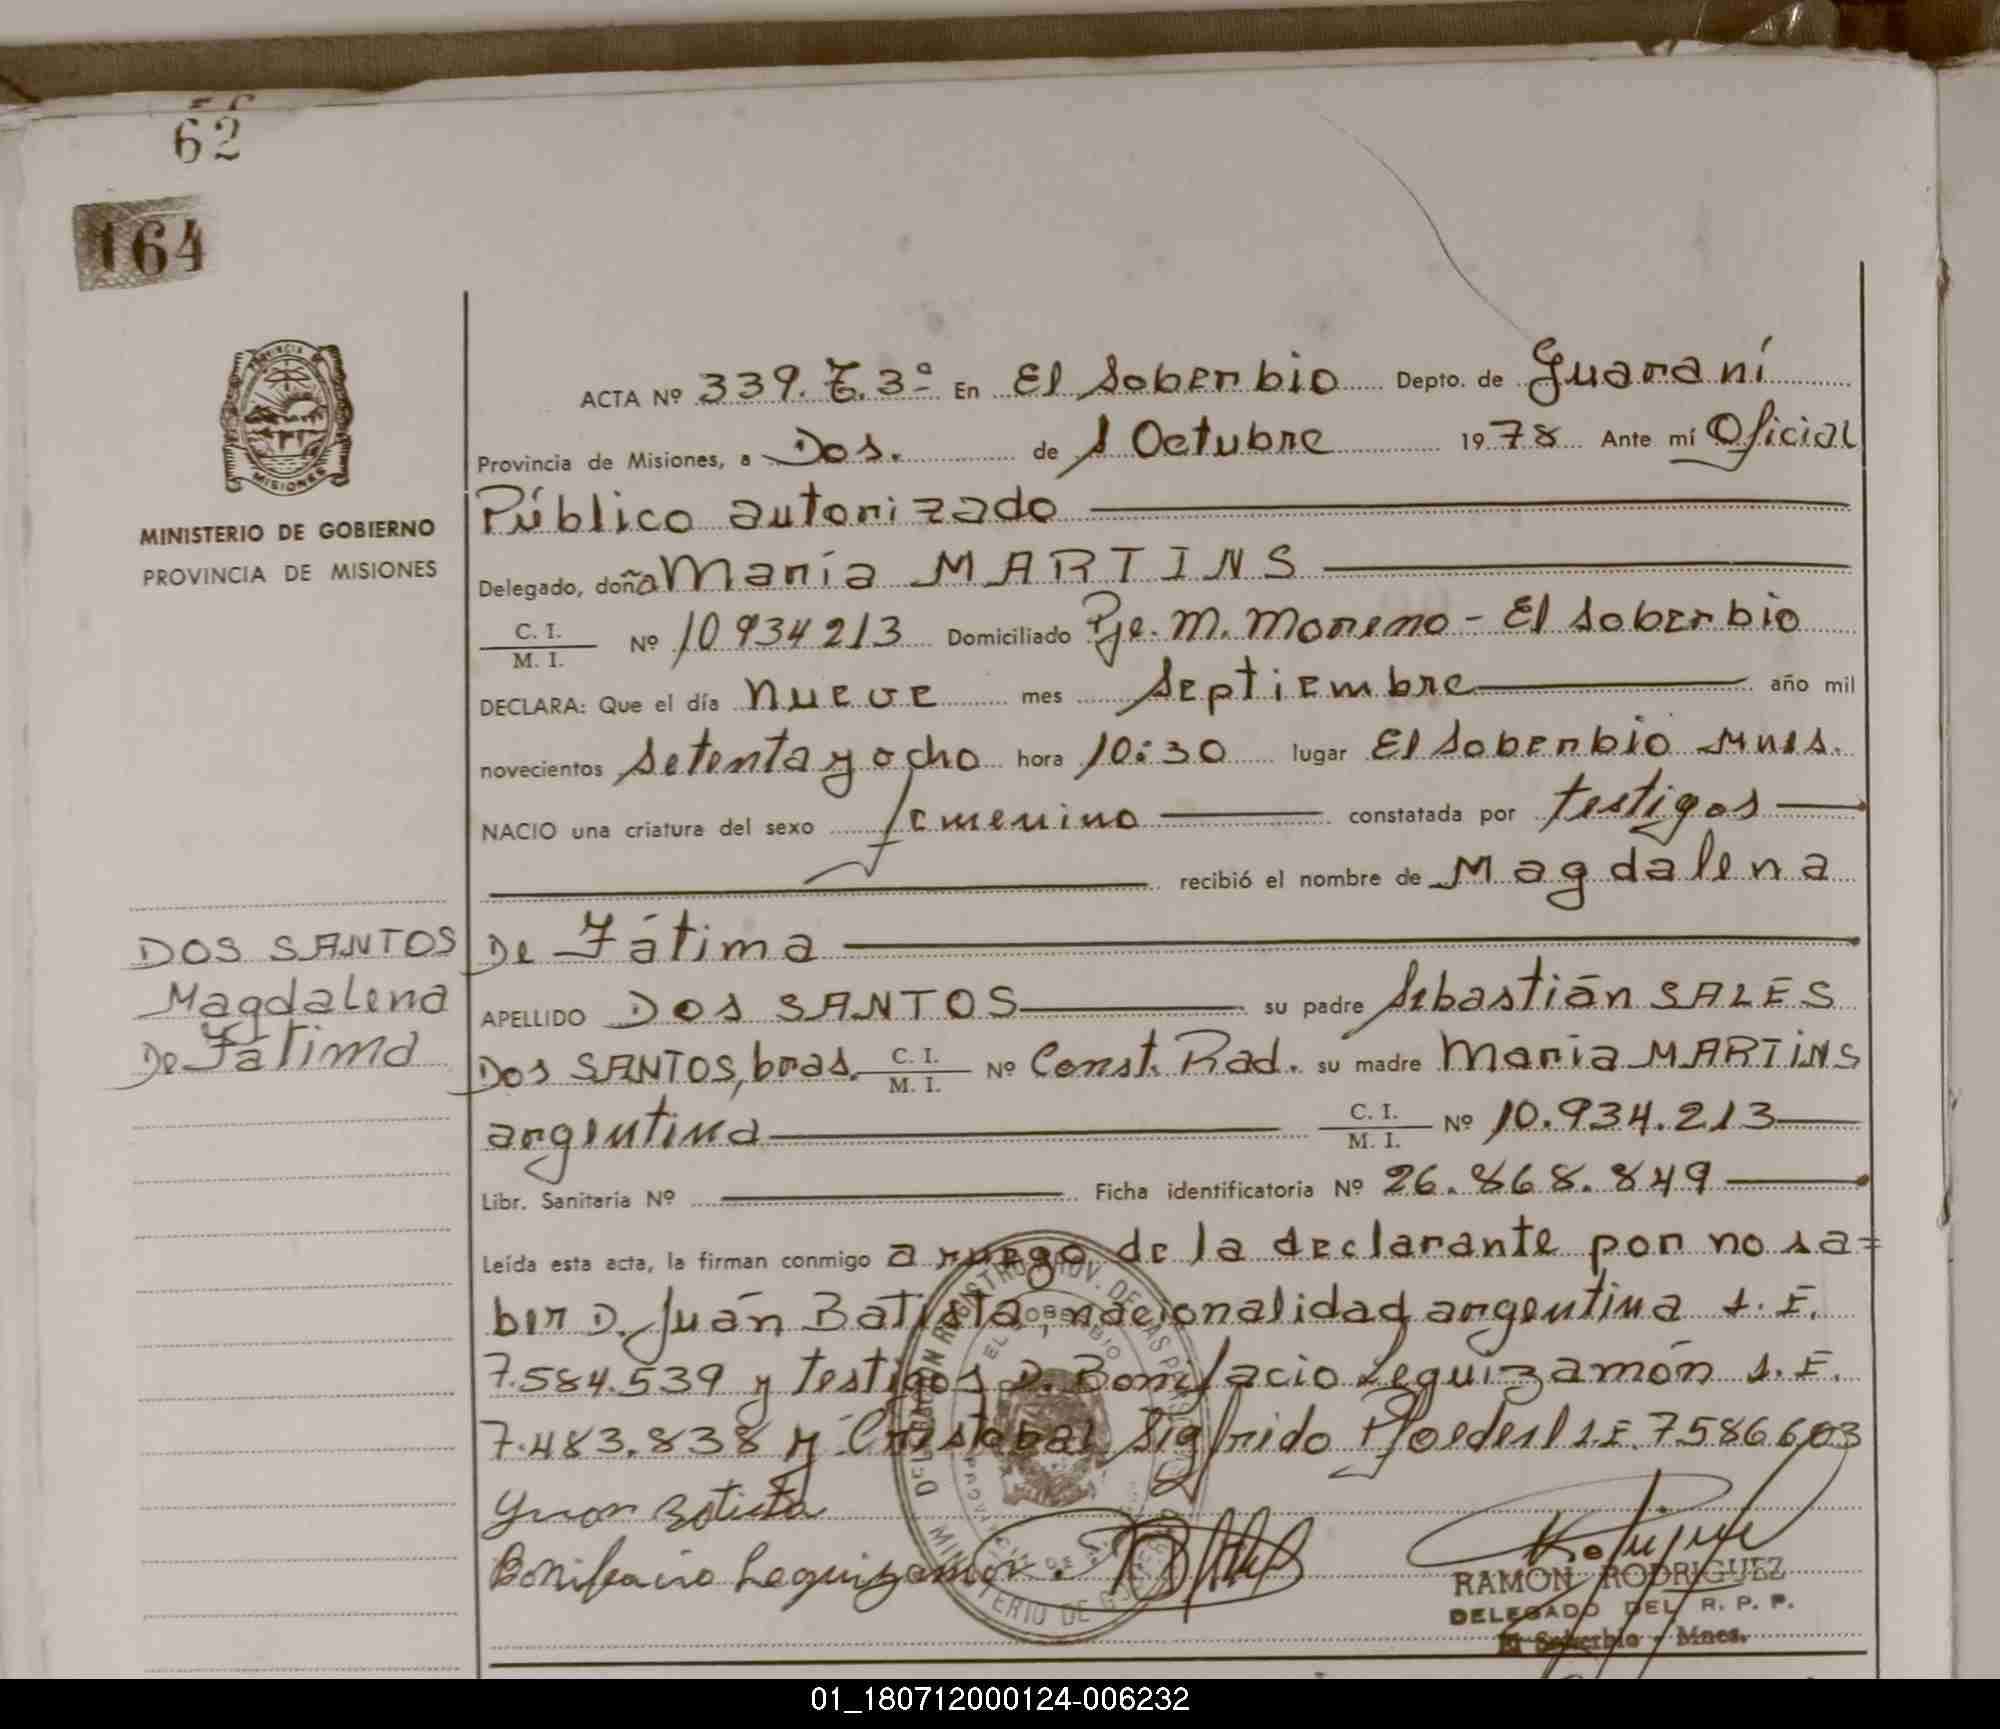 62
164
MINISTERIO DE GOBIERNO
PROVINCIA DE MISIONES
ACTA Nº 339. T. 3º En El Soberbio Depto. de Guaraní
Provincia de Misiones, a Dos. de Octubre 1978 Ante mí Oficial
Público autorizado
Delegado, doña María MARTINS
C. I. / M. I. Nº 10 934 213 Domiciliado Pje. M. Moreno - El Soberbio
DECLARA: Que el día nueve mes Septiembre año mil
novecientos Setenta y ocho hora 10:30 lugar El Soberbio Mnes.
NACIO una criatura del sexo femenino constatada por testigos
recibió el nombre de Magdalena
De Fátima
APELLIDO Dos SANTOS su padre Sebastián SALES
Dos SANTOS, bras. C. I. / M. I. Nº Const. Rad. su madre Maria MARTINS
argentina C. I. / M. I. Nº 10.934.213
Libr. Sanitaria Nº Ficha identificatoria Nº 26.868.849
Leída esta acta, la firman conmigo a ruego de la declarante por no sa=
ber D. Juán Batista, nacionalidad argentina L.E.
7.584.539 y testigos D. Bonifacio Leguizamón L.E.
7.483.838 y Cristobal Sigfrido L.E. 7586603
Juan Batista
Bonifacio Leguizamon
DOS SANTOS
Magdalena
De Fátima
EL SOBERBIO
RAMON RODRIGUEZ
DELEGADO DEL R. P. P.
El Soberbio - Mnes.
01_180712000124-006232